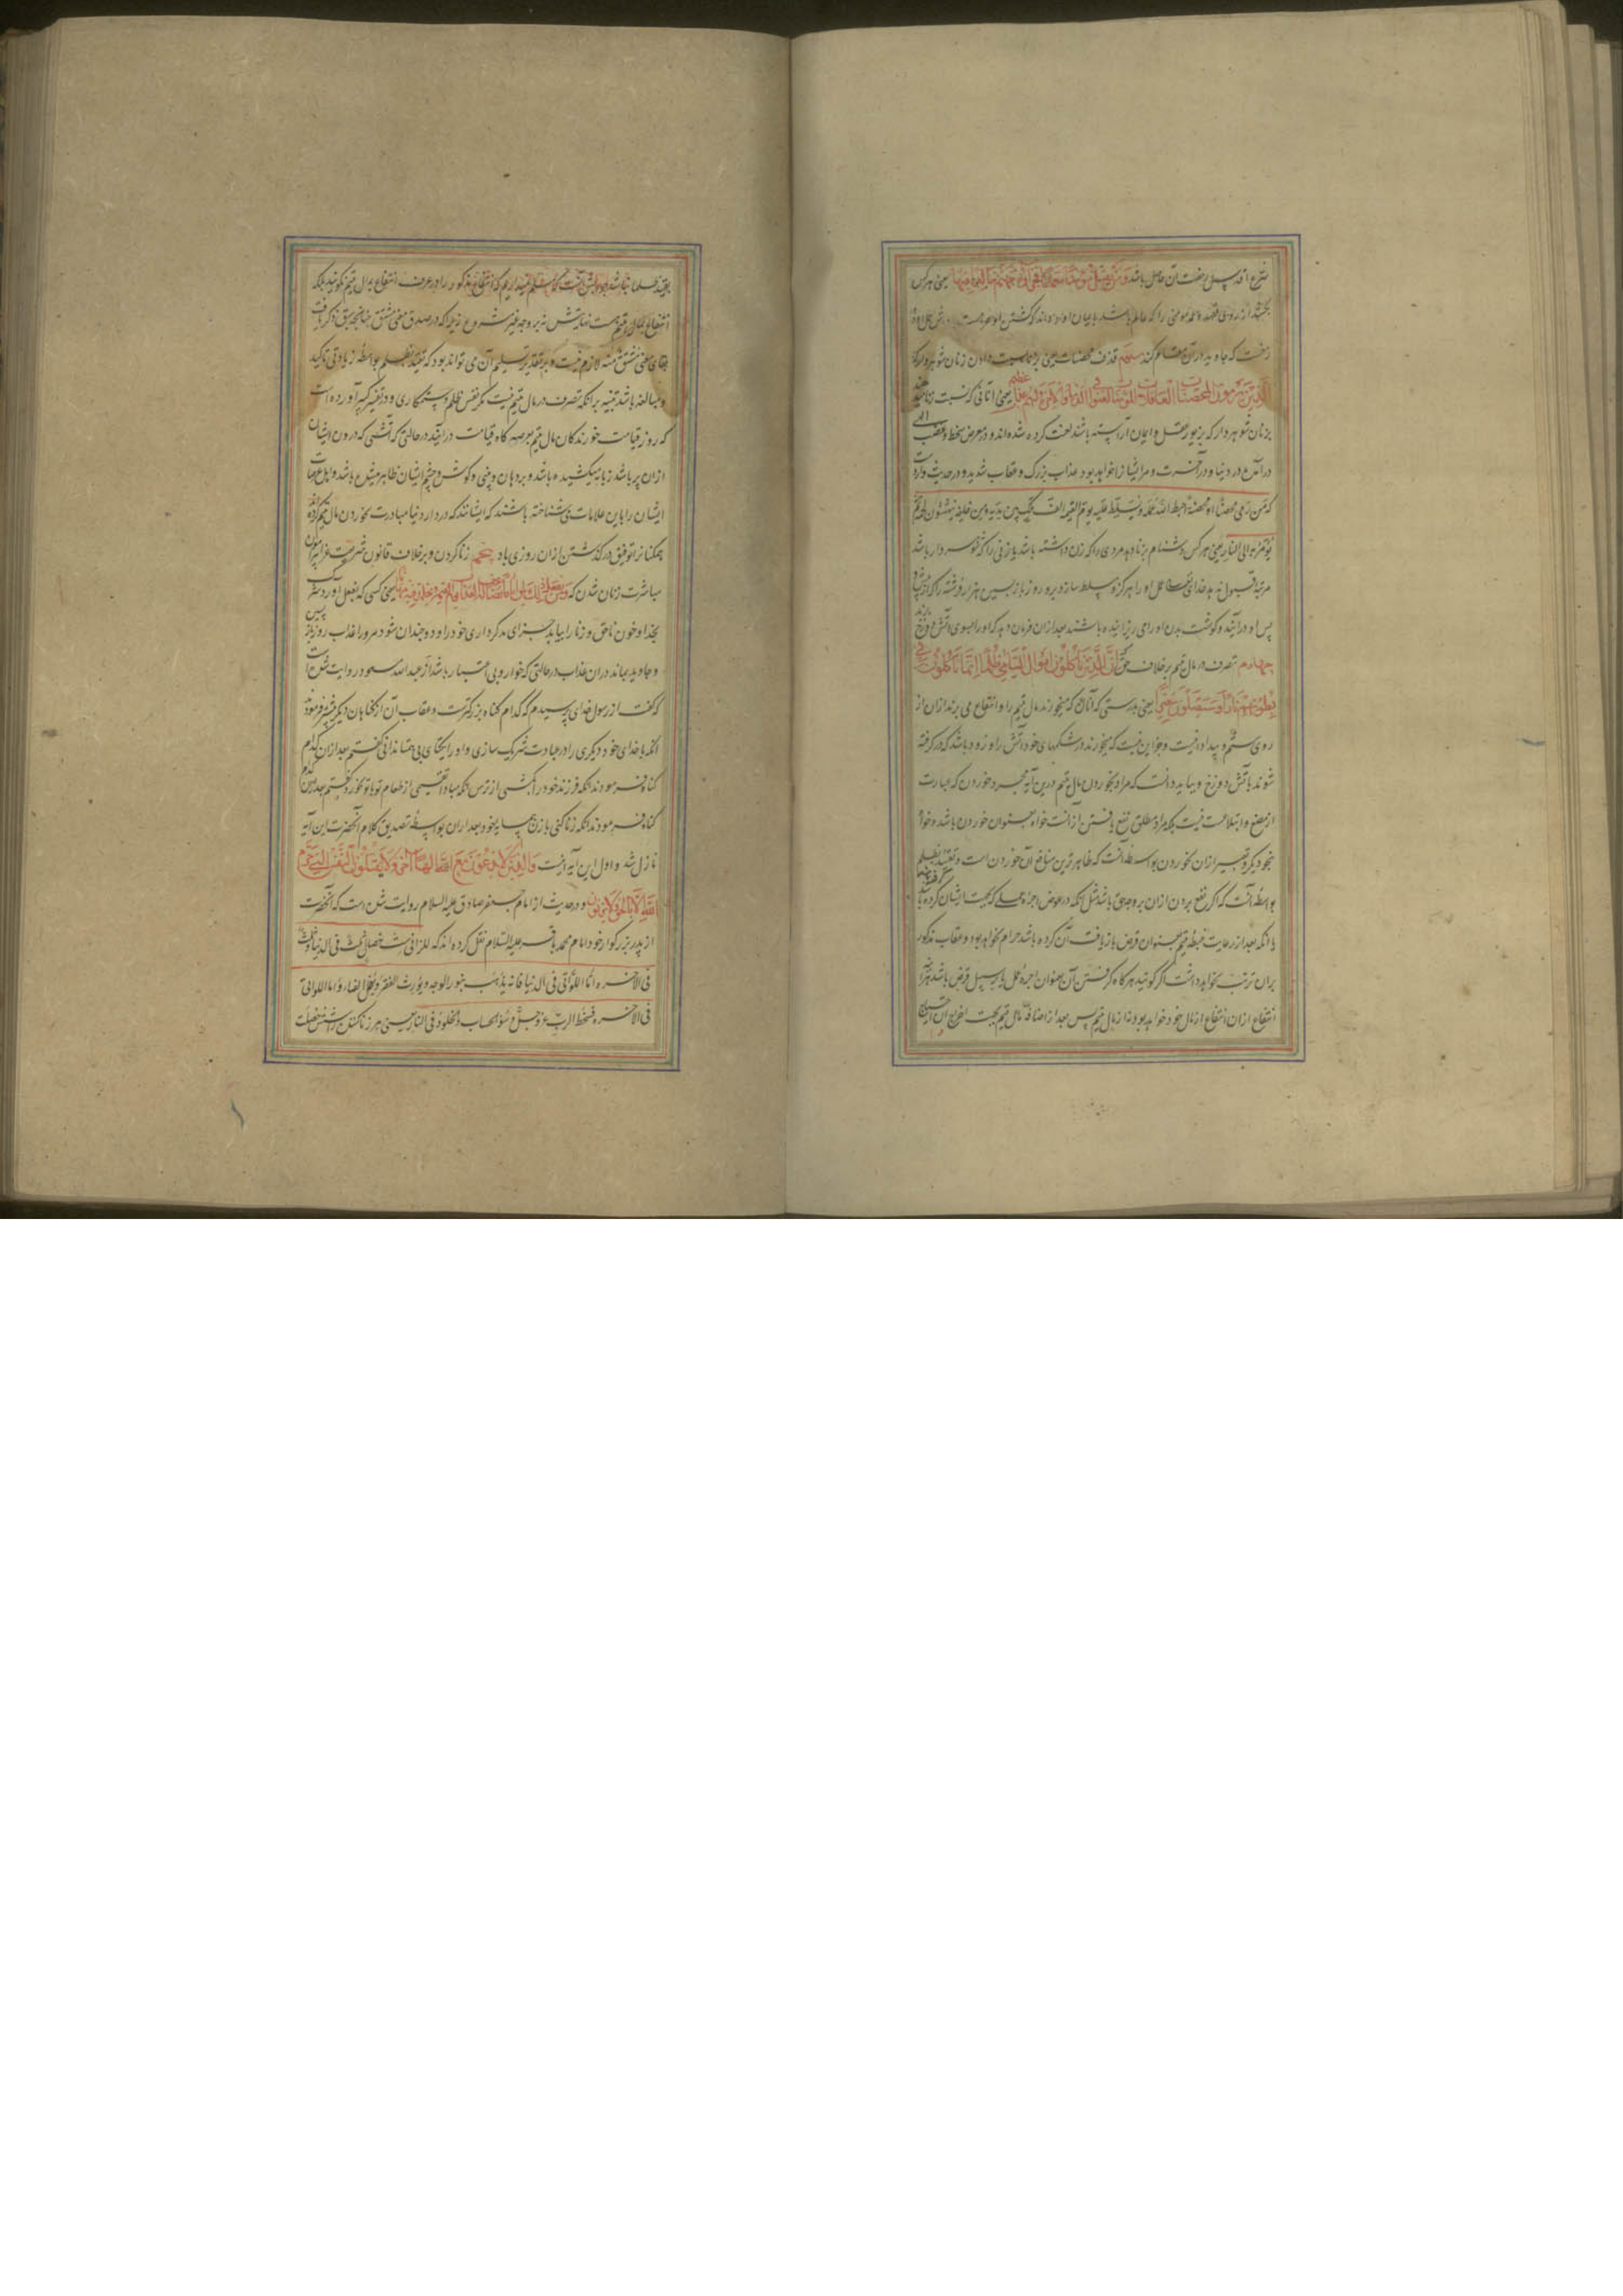 یعنی هرکس
بکشد از روی قصد و عمد مؤمنی را که عالم باشد بایمان او
که جاوید در آن مقام کند سیم قذف محصنات یعنی زنا نسبت دادن زنان شوهردار که
الذین یرمون المحصنات الغافلات المؤمنات لعنوا فی الدنیا والاخرة ولهم عذاب عظیم یعنی آنانی که نسبت زنا میدهند
بزنان شوهردار که بزیور عقل و ایمان آراسته باشند لعنت کرده شده اند و در معرض سخط و غضب الهی
در دنیا و در آخرت و مر ایشان را خواهد بود عذاب بزرگ و عقاب شدید و در حدیث وارد است
که من رمی محصنا او محصنة احبط الله عمله
یؤمر به الی النار یعنی هر کس دشنام بزنا دهد مردی را که زن داشته باشد یا زنی را که شوهردار باشد
مرتبه قبول ندهد خدای تعالی عمل او را هرگز و مسلط سازد برو روز بازپسین هزار فرشته را که از پیش و
پس او درآیند و گوشت بدن او را می ریزانیده باشند بعد ازان فرمان دهد که او را بسوی آتش دوزخ برند
چهارم تصرف در مال یتیم برخلاف حق ان الذین یأکلون اموال الیتامی ظلما انما یأکلون فی
بطونهم نارا وسیصلون سعیرا یعنی بدرستی که آنان که میخورند مال یتیم را و انتفاع می برند ازان از
روی ستم و بیداد نیست و جز این نیست که میخورند در شکمهای خود آتش را و زود باشد که درگرفته
شوند باتش دوزخ و بباید دانست که مراد بخوردن مال یتیم درین آیه مجرد خوردن که عبارت
از مضغ و ابتلاعست نیست بلکه مراد مطلق نفع یافتن از آنست خواه بعنوان خوردن باشد و خواه
بنحو دیگر و تعبیر ازان بخوردن بواسطه آنست که ظاهرترین منافع آن خوردن است و تقیید بظلم
بواسطه آنست که اگر نفع بردن ازان بر وجه حق باشد مثل آنکه در عوض اجره عملی که بجهت ایشان کرده باشد
یا آنکه بعد از رعایت غبطه یتیم بعنوان قرض بازیافت آن کرده باشد حرام نخواهد بود و عقاب مذکور
بران ترتب نخواهد داشت اگر گویند هرگاه گرفتن آن بعنوان اجره عمل یا بر سبیل قرض باشد
انتفاع ازان انتفاع از مال خود خواهد بود نه از مال یتیم پس بعد از اضافه مال یتیم بجهت اخراج آن احتیاج
بقید ظلما نباشد جوابش آنست که مسلم نمیداریم که انتفاع مذکور را در عرف انتفاع بمال یتیم نگویند بلکه
انتفاع بمال یتیم هست نهایتش نه بر وجه غیر مشروع زیرا که در صدق معنی مشتق چنانچه سبق ذکر یافت
بقای معنی مشتق منه لازم نیست و بر تقدیر تسلیم آن می تواند بود که تقیید بظلم بواسطه زیادتی تاکید
و مبالغه باشد تنبیه بر آنکه تصرف در مال یتیم نیست مگر نفس ظلم و ستمکاری و در تفسیر کبیر آورده است
که روز قیامت خورندگان مال یتیم بعرصه گاه قیامت درآیند در حالتی که آتشی که در درون ایشان
ازان پر باشد زبانه میکشیده باشد و بر دهان و بینی و گوش و چشم ایشان ظاهر میشده باشد و اهل عرصات
ایشان را باین علامات می شناخته باشند که ایشانند که در دار دنیا مبادرت بخوردن مال یتیم کرده اند
همکنانرا توفیق درگذشتن ازان روزی باد پنجم زنا کردن و برخلاف قانون شریعت غرا پیرامون
مباشرت زنان شدن که ومن یفعل ذلک یلق اثاما یضاعف له العذاب یوم القیمة ویخلد فیه مهانا یعنی کسی که بفعل آورد شرک
بخدا و خون ناحق و زنا را بیابد جزای بدکرداری خود را و دوچندان شود مرورا عذاب روز بازپسین
و جاوید بماند دران عذاب در حالتی که خوار و بی اعتبار باشد از عبد الله مسعود روایت شده است
که گفت از رسول خدای پرسیدم که کدام گناه بزرگترست و عقاب آن از گناهان دیگر بیشتر فرمودند
آنکه با خدای خود دیگری را در عبادت شریک سازی و او را یکتای بی همتا ندانی گفتم بعد ازان کدام
گناه فرمودند آنکه فرزند خود را بکشی از ترس آنکه مبادا نصیبی از طعام تو با تو بخورد گفتم بعد ازین کدام
گناه فرمودند آنکه زنا کنی با زن همسایه خود بعد ازان بواسطه تصدیق کلام آنحضرت این آیه
نازل شد و اول این آیه اینست والذین لا یدعون مع الله الها آخر ولا یقتلون النفس التی حرم
الله الا بالحق ولا یزنون و در حدیث از امام جعفر صادق علیه السلام روایت شده است که آنحضرت
از پدر بزرگوار خود امام محمد باقر علیه السلام نقل کرده اند که للزانی ست خصال ثلث فی الدنیا وثلث
فی الاخره اما اللواتی فی الدنیا فانه یذهب بنور الوجه ویورث الفقر ویعجل الفناء واما اللواتی
فی الاخره فسخط الرب عز وجل وسوء الحساب والخلود فی النار یعنی مر زناکننده را شش خصلت